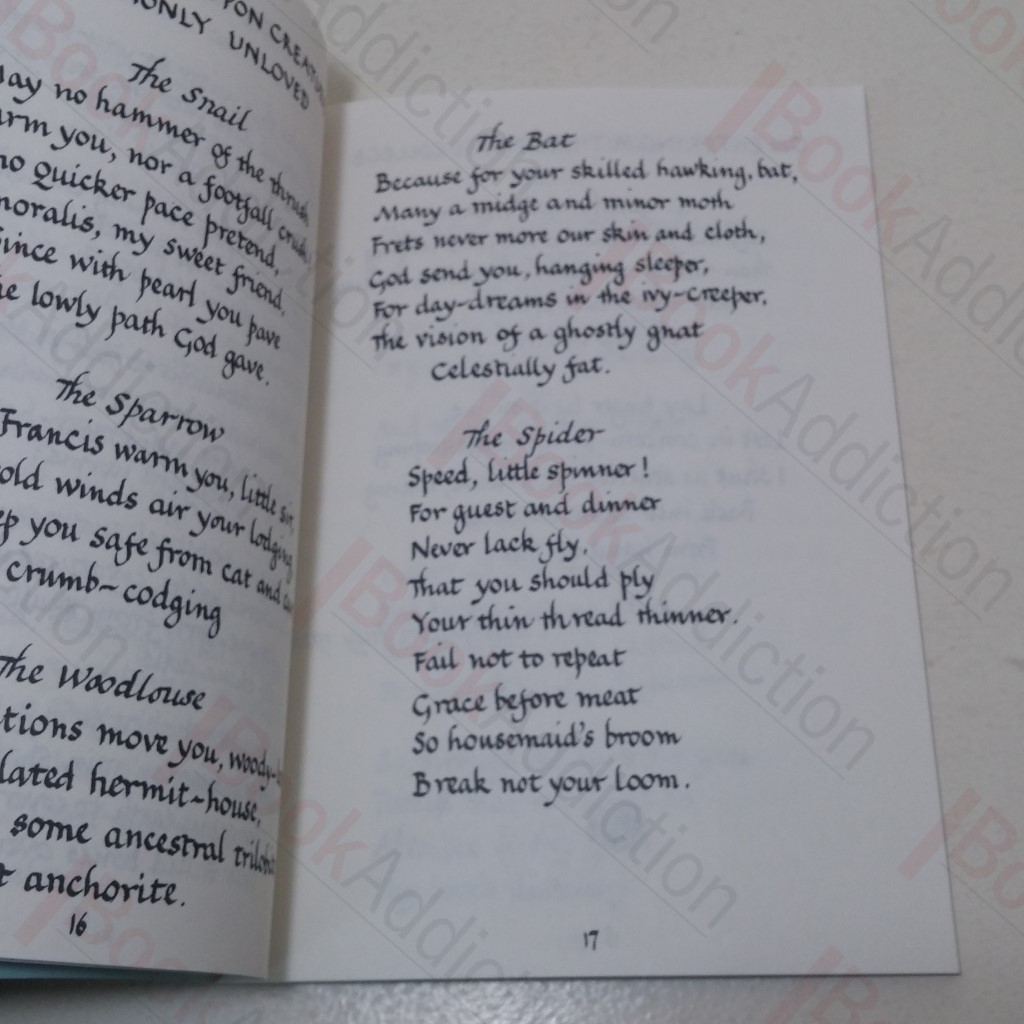 UPON CREATURES
COMMONLY UNLOVED
The Snail
May no hammer of the thrush
harm you, nor a footfall crush,
no quicker pace pretend,
moralis, my sweet friend,
Since with pearl you pave
the lowly path God gave.
The Sparrow
Francis warm you, little sir,
cold winds air your lodging
keep you safe from cat and
crumb-codging
The Woodlouse
tions move you, woody-
lated hermit-house,
some ancestral trilobite
anchorite.
16
The Bat
Because for your skilled hawking, bat,
Many a midge and minor moth
Frets never more our skin and cloth,
God send you, hanging sleeper,
For day-dreams in the ivy-creeper,
The vision of a ghostly gnat
Celestially fat.
The Spider
Speed, little spinner!
For guest and dinner
Never lack fly,
That you should ply
Your thin thread thinner.
Fail not to repeat
Grace before meat
So housemaid's broom
Break not your loom.
17
IBookAddiction